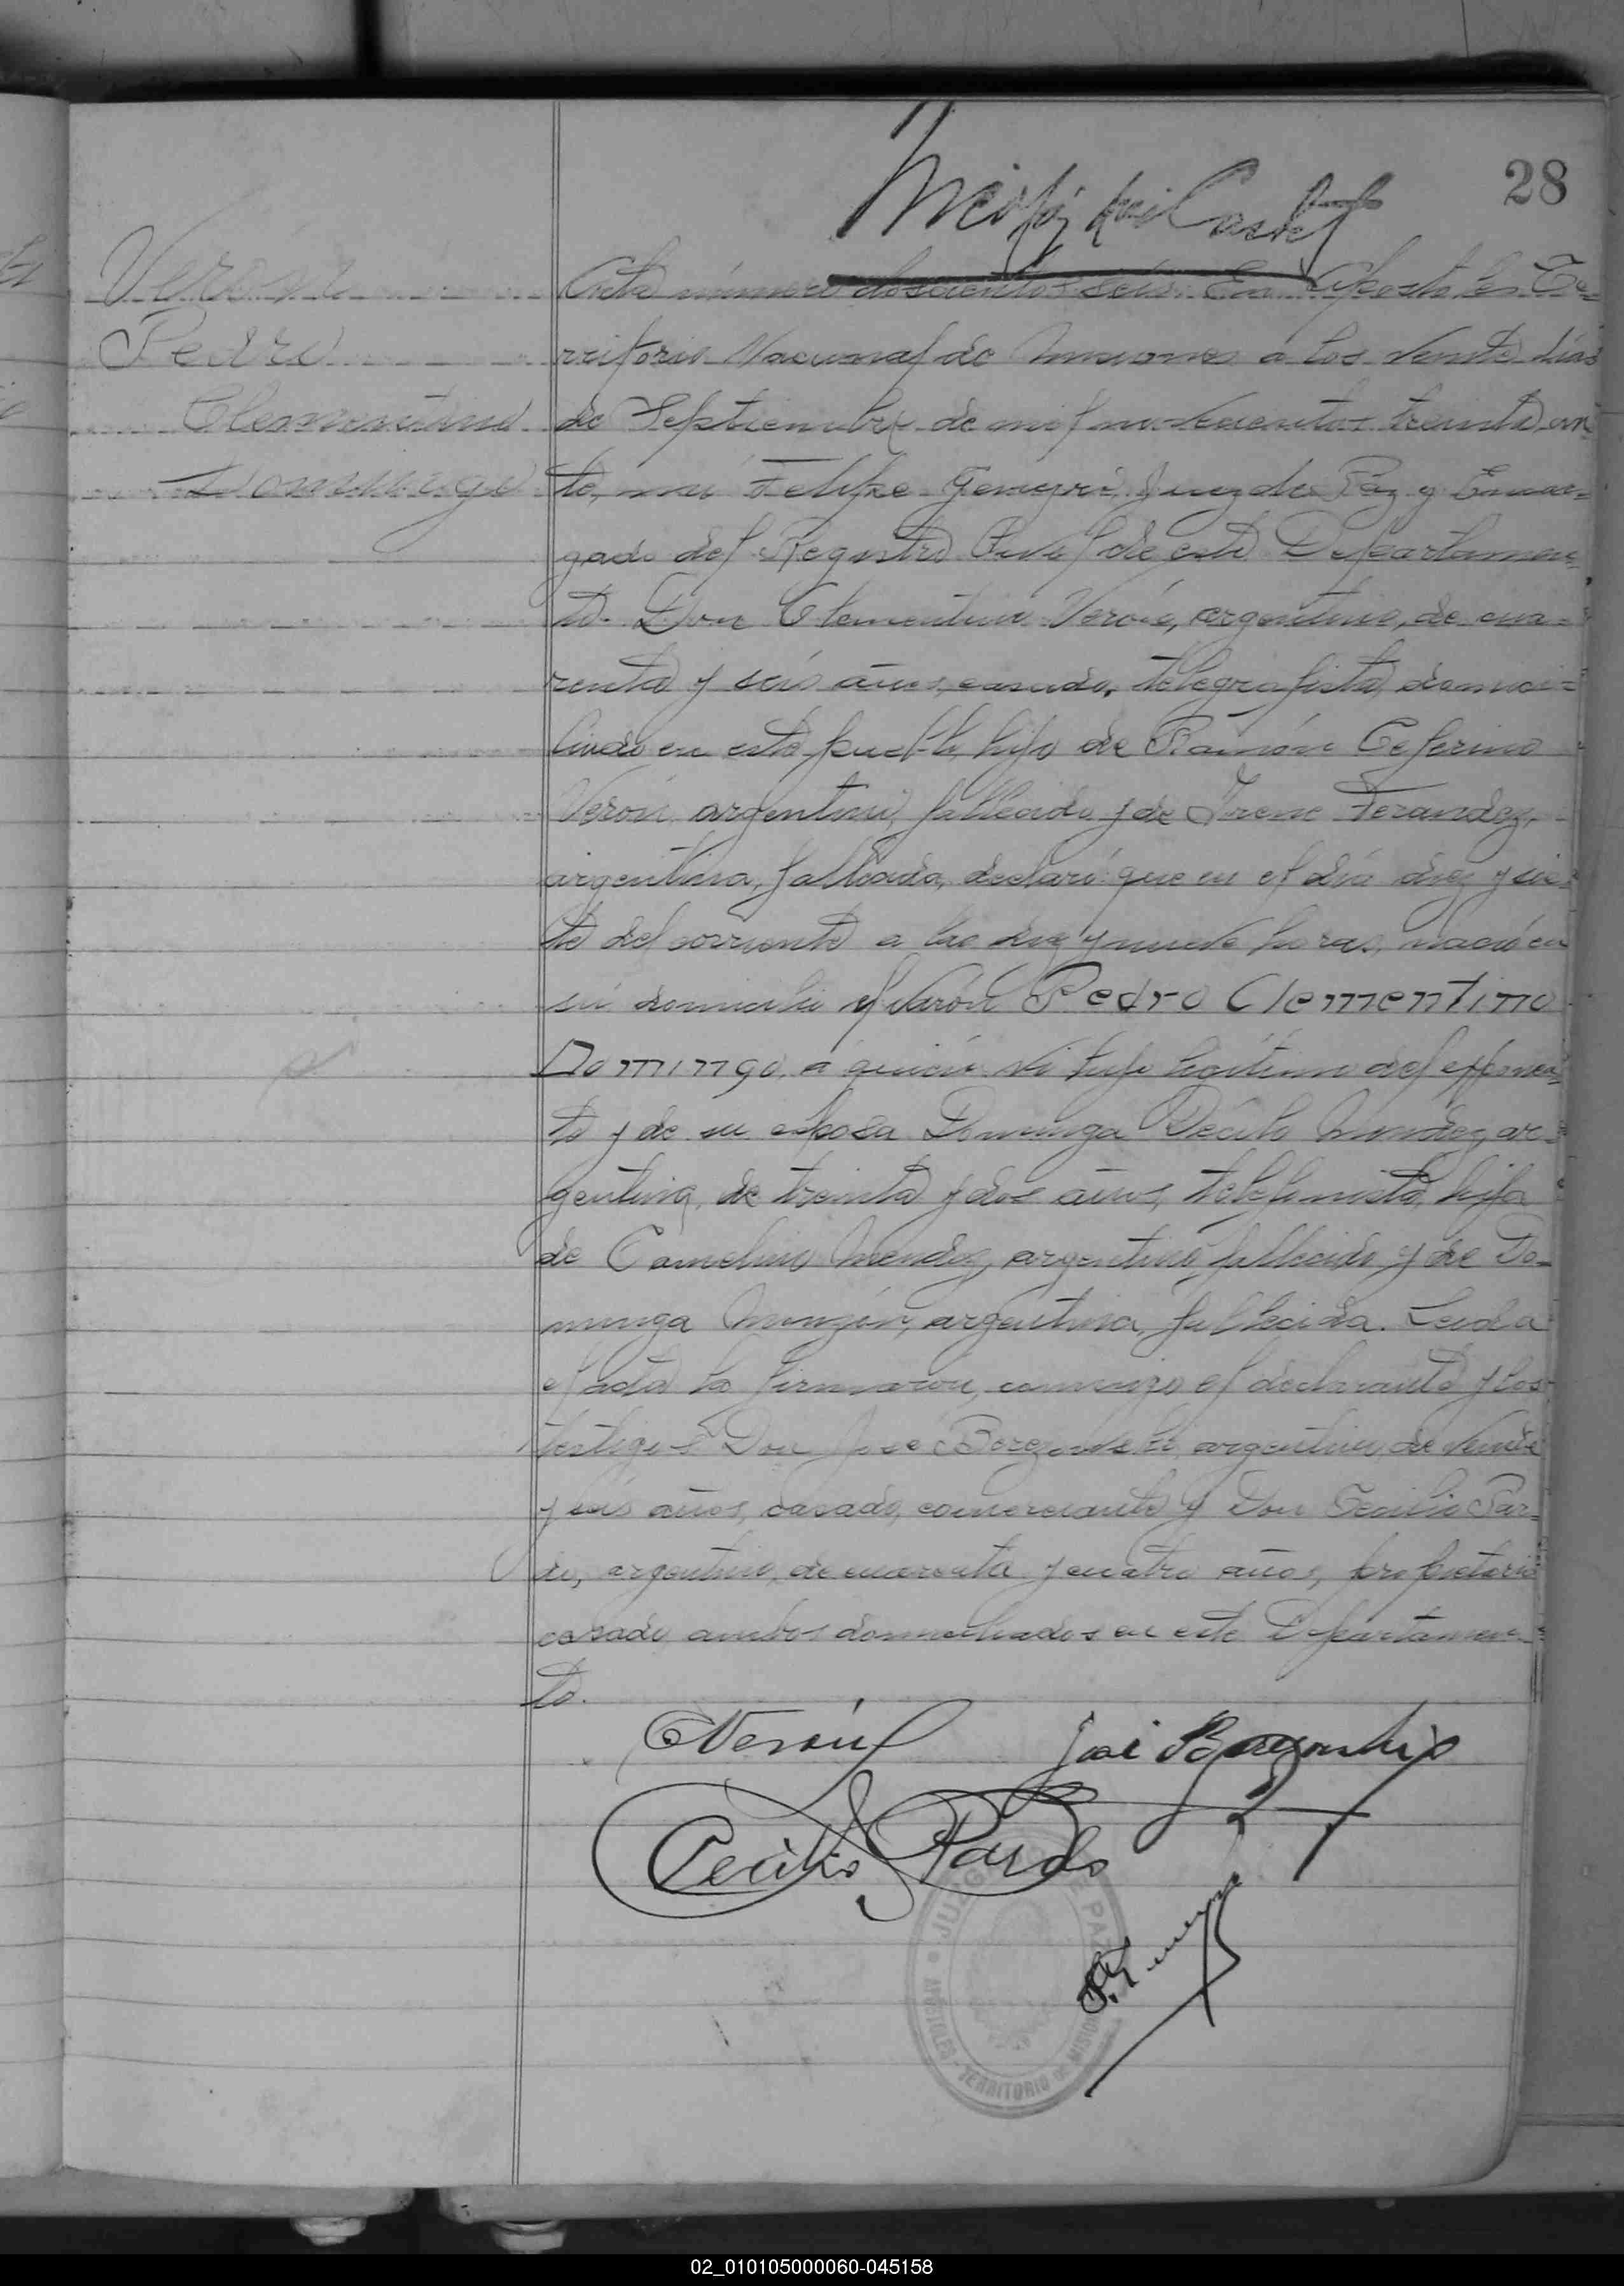 28
Verón
Pedro
Clementino
Domingo
Acta número doscientos seis. En Apóstoles Te=
rritorio Nacional de Misiones a los veinte días
de Septiembre de mil novecientos treinta, an
te, mi Felipe Juez de Paz y Encar=
gado del Registro Civil de este Departamen=
to. Don Clementino Verón, argentino, de cua=
renta y seis años, casado, telegrafista, domici=
liado en este pueblo, hijo de Ramón Ceferino
Verón, argentino, fallecido y de Irene Ferandez,
argentina, fallecida, declaró: que en el día diez y sie=
te del corriente a las diez y nueve horas, nació en
su domicilio el varón Pedro Clementino
Domingo, a quien ví hijo legítimo del exponen=
te y de su esposa Domminga Mendez, ar=
gentina, de treinta y dos años, telefonista, hija
de Mendez, argentino, fallecido y de Do=
minga argentina, fallecida. Leida
el acta la firmaron, conmigo, el declarante y los
testigos Don José argentino, de veinte
y seis años, casado, comerciante y Don Cecilio Par=
do, argentino, de cuarenta y cuatro años, propietario
casado, ambos domiciliados en este Departamen=
to.
CVerón José
Cecilio Pardo
JUZGADO DE PAZ
APÓSTOLES - TERRITORIO DE MISIONES
02_010105000060-045158